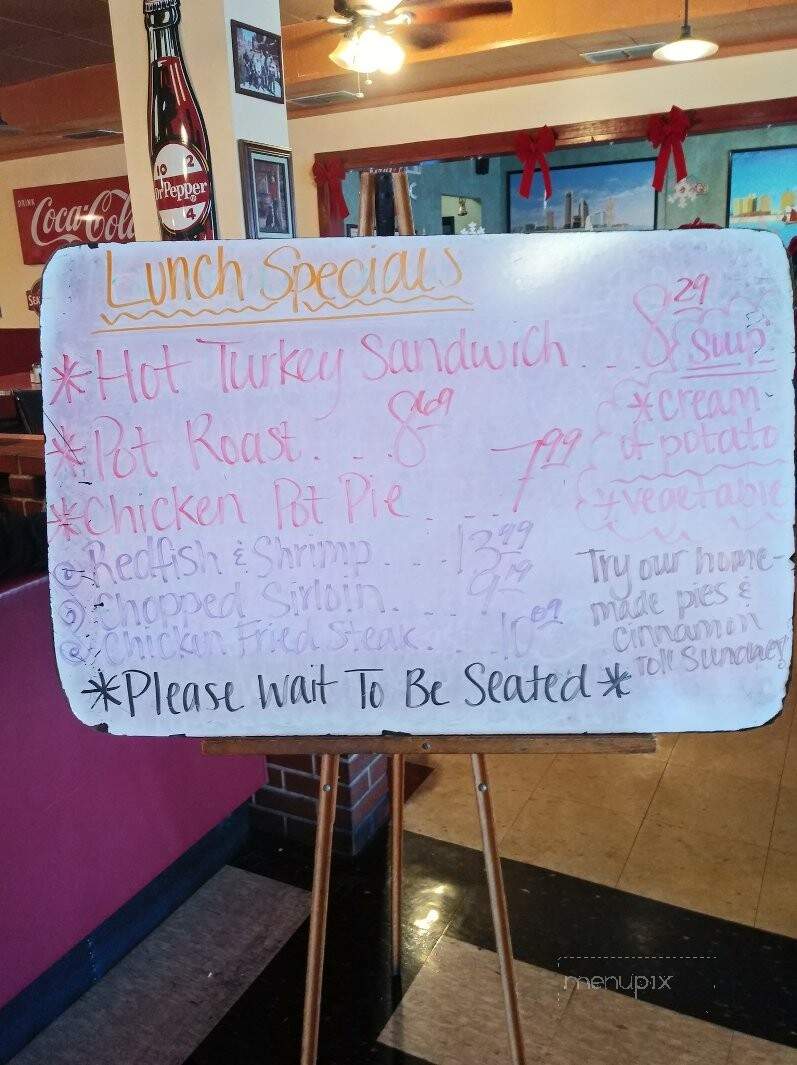 DRINK
Coca-Cola
10 2
Dr Pepper
4
Lunch Specials
*Hot Turkey Sandwich . . . 8 29
*Pot Roast. . . 8 69
*Chicken Pot Pie . . . 7 99
Redfish & Shrimp . . . 13 99
Chopped Sirloin. . . . 9 19
Chicken Fried Steak. . . 10
Soup
*cream
of potato
*vegetable
Try our home-
made pies &
cinnamon
roll Sundaes!
*Please Wait To Be Seated*
menupix